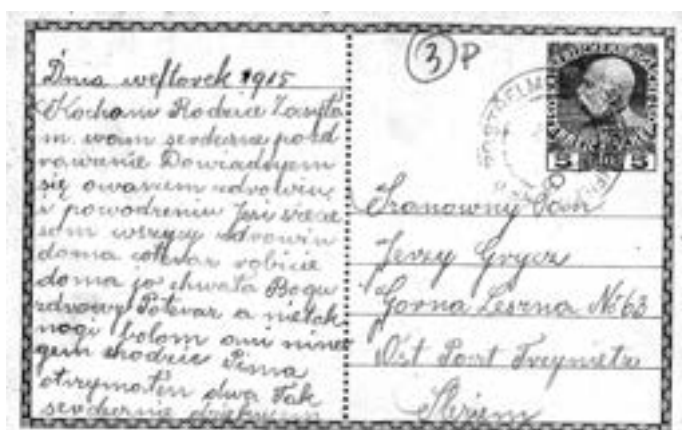 Dnia weftorek 1915
Kochani Rodzice Zasyła
m. wam serdeczne pozd
rowienie Dowiaduyem
się owaszem zdrowiu
i powodzeniu Jesi
som wszyscy zdrowiu
doma robicie
doma jo chwała Bogu
zdrowy Potevar a
nogi bolom ani
gem chodzic Pisma
otrzymołen dwa Tak
serdecznie
3 P
5 5
Szanowny Pan
Jerzy Grycz
Gorna Leszna No 63
Ost Post Trzynietz
Slezien